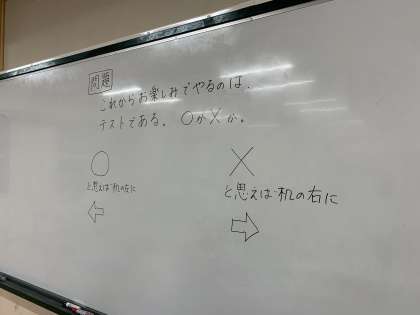 問題
これからお楽しみでやるのは、
テストである。○か×か。
○
と思えば机の左に
⇦
×
と思えば机の右に
⇨